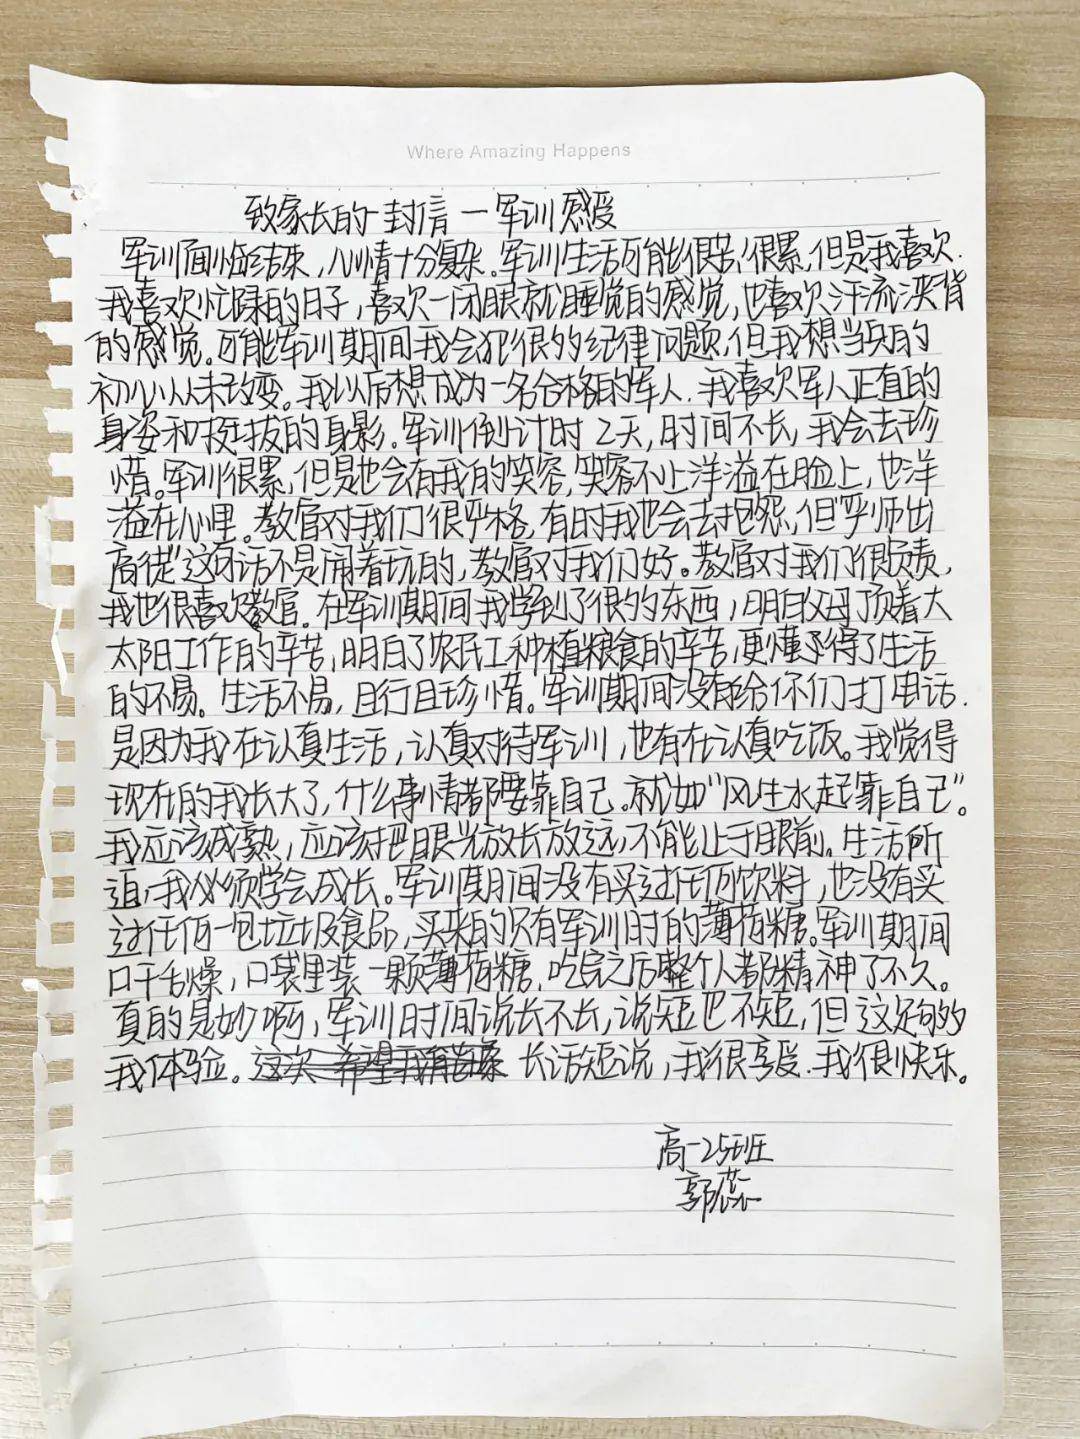 Where Amazing Happens
致家长的一封信一军训感受
军训面临结束,心情十分复杂.军训生活可能很苦,很累,但是我喜欢.
我喜欢忙碌的日子,喜欢一闭眼就睡觉的感觉,也喜欢汗流浃背
的感觉。可能军训期间我会犯很多纪律问题,但我想当兵的
初心从未改变。我以后想成为一名合格的军人.我喜欢军人正直的
身姿和挺拔的身影.军训倒计时2天,时间不长,我会去珍
惜。军训很累,但是也会有我的笑容,笑容不止洋溢在脸上,也洋
溢在心里。教官对我们很严格,有时我也会去抱怨,但“严师出
高徒”这句话不是闹着玩的,教官对我们好。教官对我们很负责,
我也很喜欢教官.在军训期间我学到了很多东西,明白父母顶着大
太阳工作的辛苦,明白了农民工种植粮食的辛苦,更懂得了生活
的不易。生活不易,且行且珍惜。军训期间没有给你们打电话.
是因为我在认真生活,认真对待军训,也有在认真吃饭。我觉得
现在的我长大了,什么事情都要靠自己.就如“风生水起靠自己”。
我应该成熟,应该把眼光放长放远,不能止于眼前。生活所
迫,我必须学会成长。军训期间没有买过任何饮料,也没有买
过任何一包垃圾食品,买来的只有军训时的薄荷糖.军训期间
口干舌燥,口袋里装一颗薄荷糖,吃完之后整个人都精神了不久。
真的是妙啊,军训时间说长不长,说短也不短,但这足够多
我体验。长话短说,我很享受.我很快乐。
高一25班
郭蕊